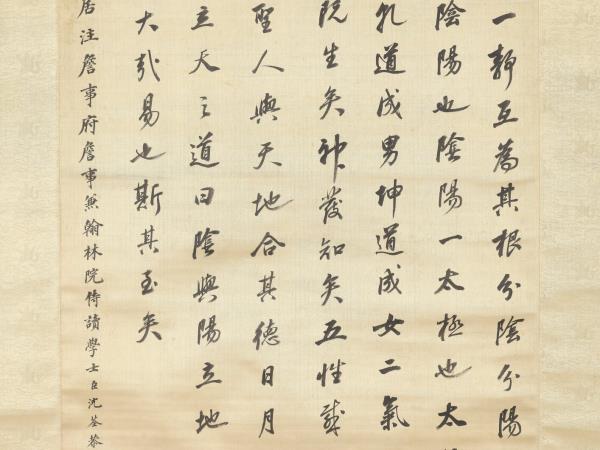 一靜互為其根分陰分陽
陰陽也陰陽一太極也太
乾道成男坤道成女二氣
既生矣神發知矣五性感
聖人與天地合其德日月
立天之道曰陰與陽立地
大哉易也斯其至矣
居注詹事府詹事兼翰林院侍讀學士臣沈荃恭